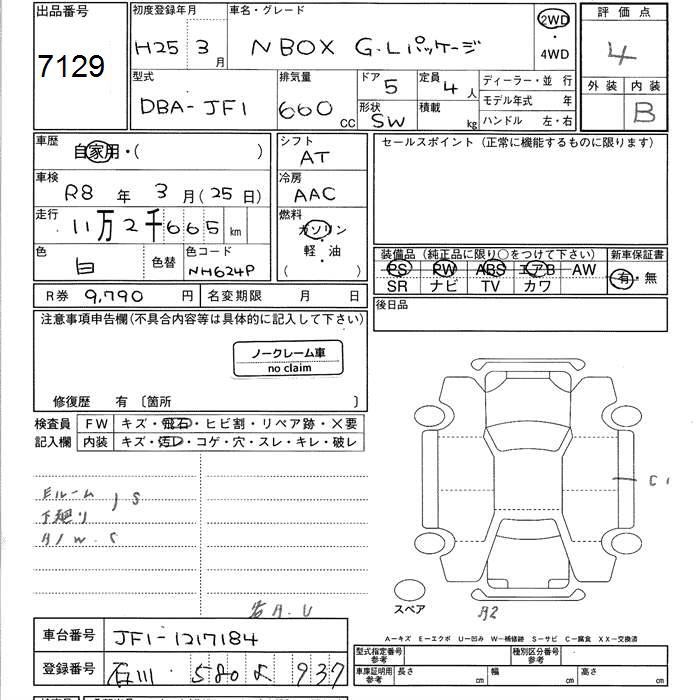 出品番号
7129
初度登録年月
H25 3 月
車名・グレード
N BOX G・Lパッケージ
2WD
・
4WD
評価点
4
外装 内装
B
型式
DBA-JF1
排気量
660 CC
ドア 5
形状 SW
定員 4 人
積載 kg
ディーラー・並 行
モデル年式 年
ハンドル 左・右
車歴
自家用・( )
車検
R8 年 3 月(25 日)
走行
11万2千665 km
色
白
色替
色コード
NH624P
シフト
AT
冷房
AAC
燃料
ガソリン
・
軽・油
( )
セールスポイント(正常に機能するものに限ります)
装備品(純正品に限り○をつけて下さい)
PS PW ABS エアB AW
SR ナビ TV カワ
新車保証書
有・無
R券 9,790 円
名変期限 月 日
後日品
注意事項申告欄(不具合内容等は具体的に記入して下さい)
ノークレーム車
no claim
修復歴 有〔箇所 〕
検査員
記入欄
FW キズ・飛石・ヒビ割・リペア跡・X要
内装 キズ・汚レ・コゲ・穴・スレ・キレ・破レ
Eルーム
下廻り
S
A/W.S
A.U
C1
A2
スペア
A-キズ E-エクボ U-凹み W-補修跡 S-サビ C-腐食 XX-交換済
車台番号 JF1-1217184
登録番号 石川 580 よ 937
型式指定番号
参考
種別区分番号
参考
車庫証明用
参考
長さ cm
幅 cm
高さ cm